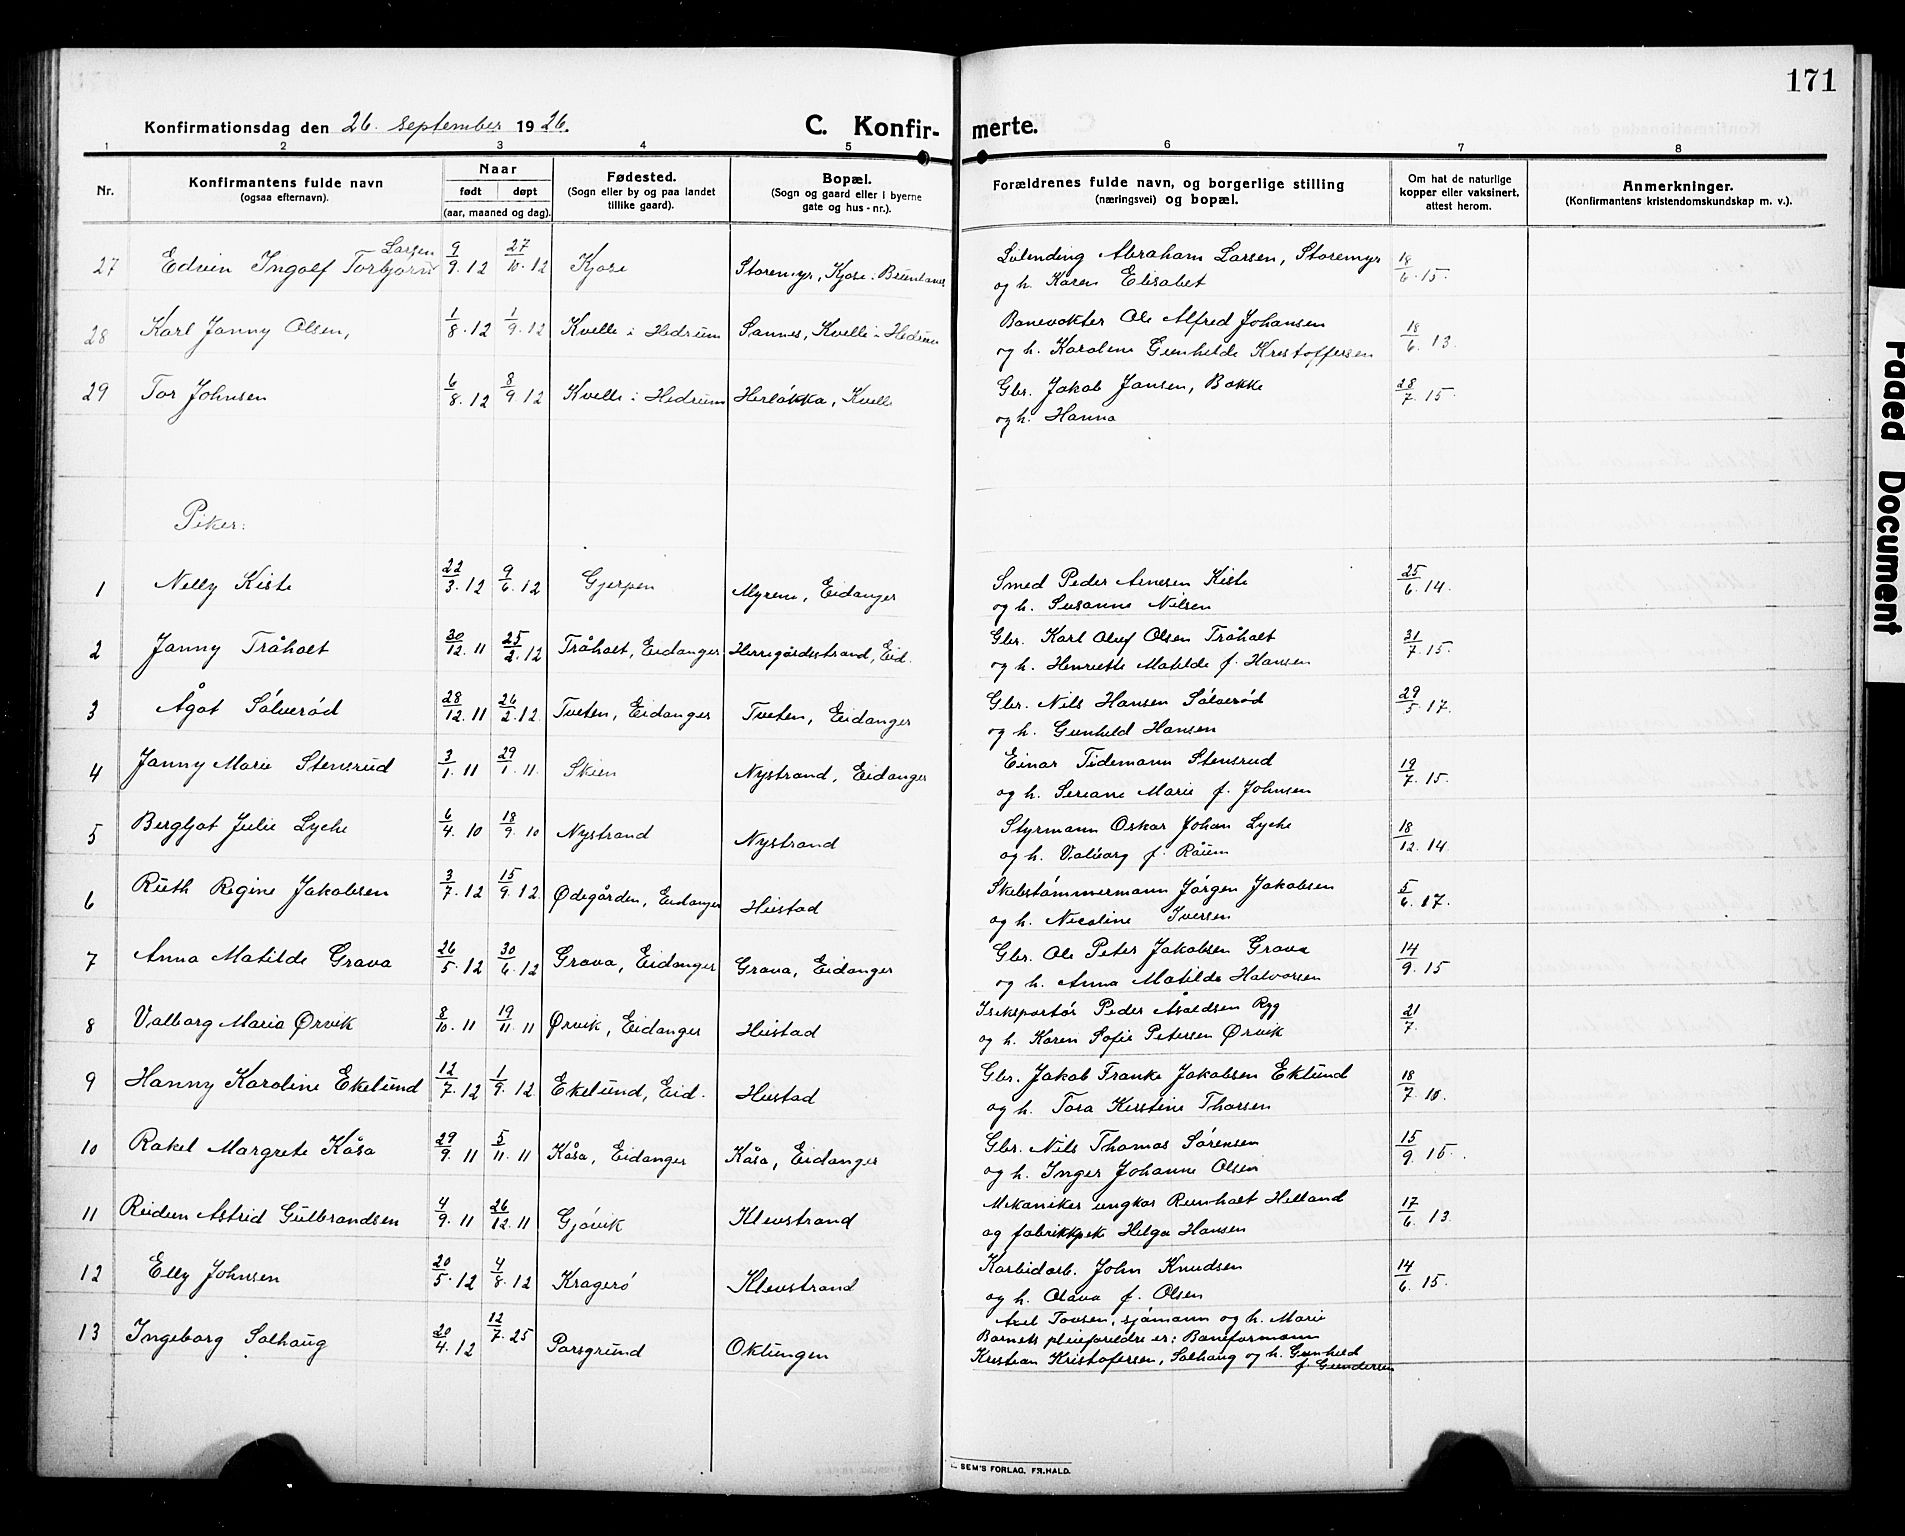 171
Konfirmationsdag den 26. september 1926.
C. Konfir-
merte.
1 2 3 4 5 6 7 8
Nr.
Konfirmantens fulde navn
(ogsaa efternavn).
Naar
født døpt
(aar, maaned og dag).
Fødested.
(Sogn eller by og paa landet
tillike gaard).
Bopæl.
(Sogn og gaard eller i byerne
gate og hus-nr.).
Forældrenes fulde navn, og borgerlige stilling
(næringsvei) og bopæl.
Om hat de naturlige
kopper eller vaksinert,
attest herom.
Anmerkninger.
(Konfirmantens kristendomskundskap m. v.).
27 Edvin Ingolf Torbjørn Larsen 9/9.12 27/10.12 Kjose Storemyr, Kjose i Brunlanes Abraham Larsen, Storemyr 18/6.15.
og h. Karen Elisabet
28 Karl Janny Olsen, 1/8.12 1/9.12 Kvelle i Hedrum Sannes, Kvelle i Hedrum Banevokter Ole Alfred Johansen 18/6.13.
og h. Karoline Gunhilde Kristoffersen
29 Tor Johnsen 6/8.12 8/9.12 Kvelle i Hedrum Herløkka, Kvelle Gbr. Jakob Jansen, Bakke 28/7.15.
og h. Hanna
Piker:
1 Nelly Kiste 22/3.12 9/6.12 Gjerpen Myrene, Eidanger Smed Peder Arnesen Kiste 25/6.14.
og h. Susanne Nilsen
2 Janny Tråholt 30/12.11 25/2.12 Tråholt, Eidanger Herregårdsstrand, Eid. Gbr. Karl Oluf Olsen Tråholt 31/7.15.
og h. Henriette Matilde f. Hansen
3 Ågot Sølverød 28/12.11 26/2.12. Tveten, Eidanger Tveten, Eidanger Gbr. Nils Hansen Sølverød 29/5.17.
og h. Gunhild Hansen
4 Janny Marie Stensrud 3/1.11 29/1.11. Skien Nystrand, Eidanger Einar Tidemann Stensrud 19/7.15.
og h. Seriane Marie f. Johnsen
5 Bergljot Julie Lyche 6/4.10 18/9.10 Nystrand Nystrand Styrmann Oskar Johan Lyche 18/12.14.
og h. Valborg f. Råum
6 Ruth Regine Jakobsen 3/7.12 15/9.12. Ødegården, Eidanger Heistad Skibstømmermann Jørgen Jakobsen 5/6.17.
og h. Nicoline Iversen
7 Anna Matilde Grava 26/5.12 30/6.12 Grava, Eidanger Grava, Eidanger Gbr. Ole Peter Jakobsen Grava 14/9.15
og h. Anna Matilde Halvorsen
8 Valborg Maria Ørvik 8/10.11 19/11.11 Ørvik, Eidanger Heistad Iseksportør Peder Åsoldsen Ryg 21/7.
og h. Karen Sofie Petersen Ørvik
9 Hanny Karoline Ekelund 12/7.12 1/9.12. Ekelund, Eid. Heistad Gbr. Jakob Franke Jakobsen Eklund 18/7.10.
og h. Tora Kirstine Thorsen
10 Rakel Margrete Kåsa 29/9.11 5/11.11 Kåsa, Eidanger Kåsa, Eidanger Gbr. Nils Thomas Sørensen 15/9.15.
og h. Inger Johanne Olsen
11 Reidun Astrid Gulbrandsen 4/9.11 26/12.11 Gjøvik Klevstrand Mekaniker ungkar Reinholt Helland 17/6.13.
og fabrikkpike Helga Hansen
12 Elly Johnsen 20/5.12 4/8.12 Kragerø Klevstrand Karbidarb. John Knudsen 14/6.15.
og h. Olava f. Olsen
13 Ingeborg Solhaug 20/4.12 12/7.25 Porsgrund Oklungen Axel Tovsen, sjømann og h. Marie
Barnets pleieforeldre er: Baneformann
Kristian Kristofersen, Solhaug og h. Gunhild
f. Gundersen
SEM'S FORLAG, FR.HALD.
Faded Document